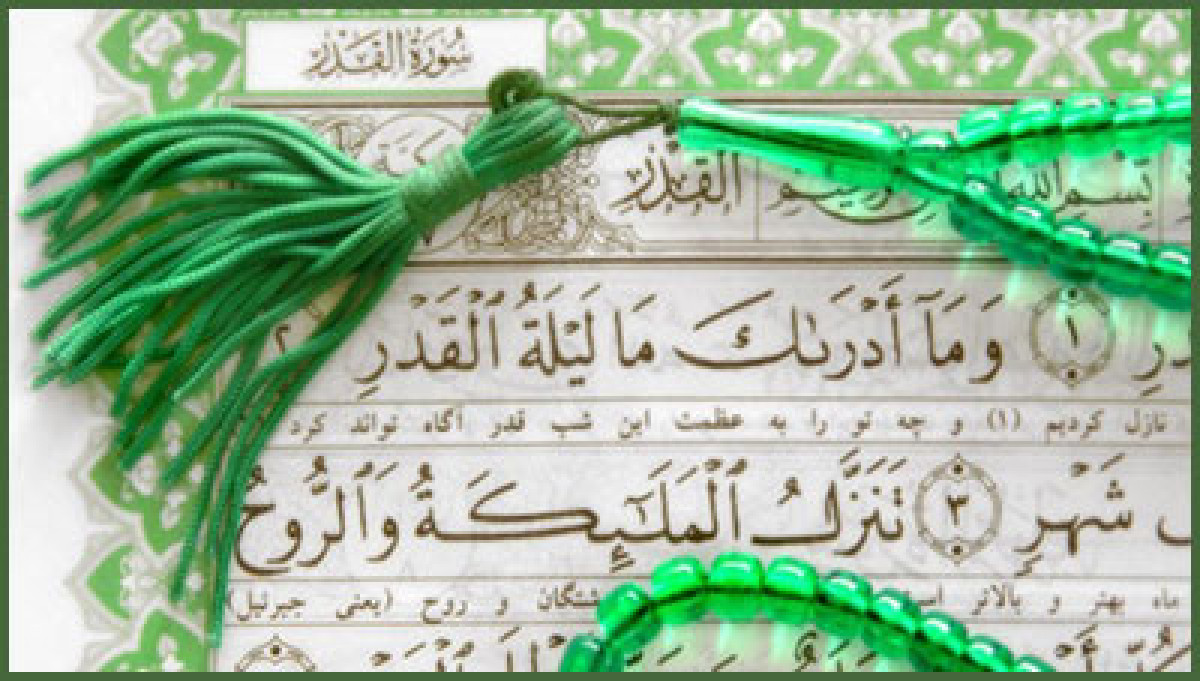 سُورَةُ القَدْرِ
بِسْمِ اللَّهِ القَدْرِ
دْرِ ١ وَمَآ أَدْرَىٰكَ مَا لَيْلَةُ ٱلْقَدْرِ ٢
نازل کردیم (۱) و چه تو را به عظمت این شب قدر آگاه تواند کرد
شَهْرٍ ٣ تَنَزَّلُ ٱلْمَلَـٰٓئِكَةُ وَٱلرُّوحُ
ماه بهتر و بالاتر و روح (یعنی جبرئیل)